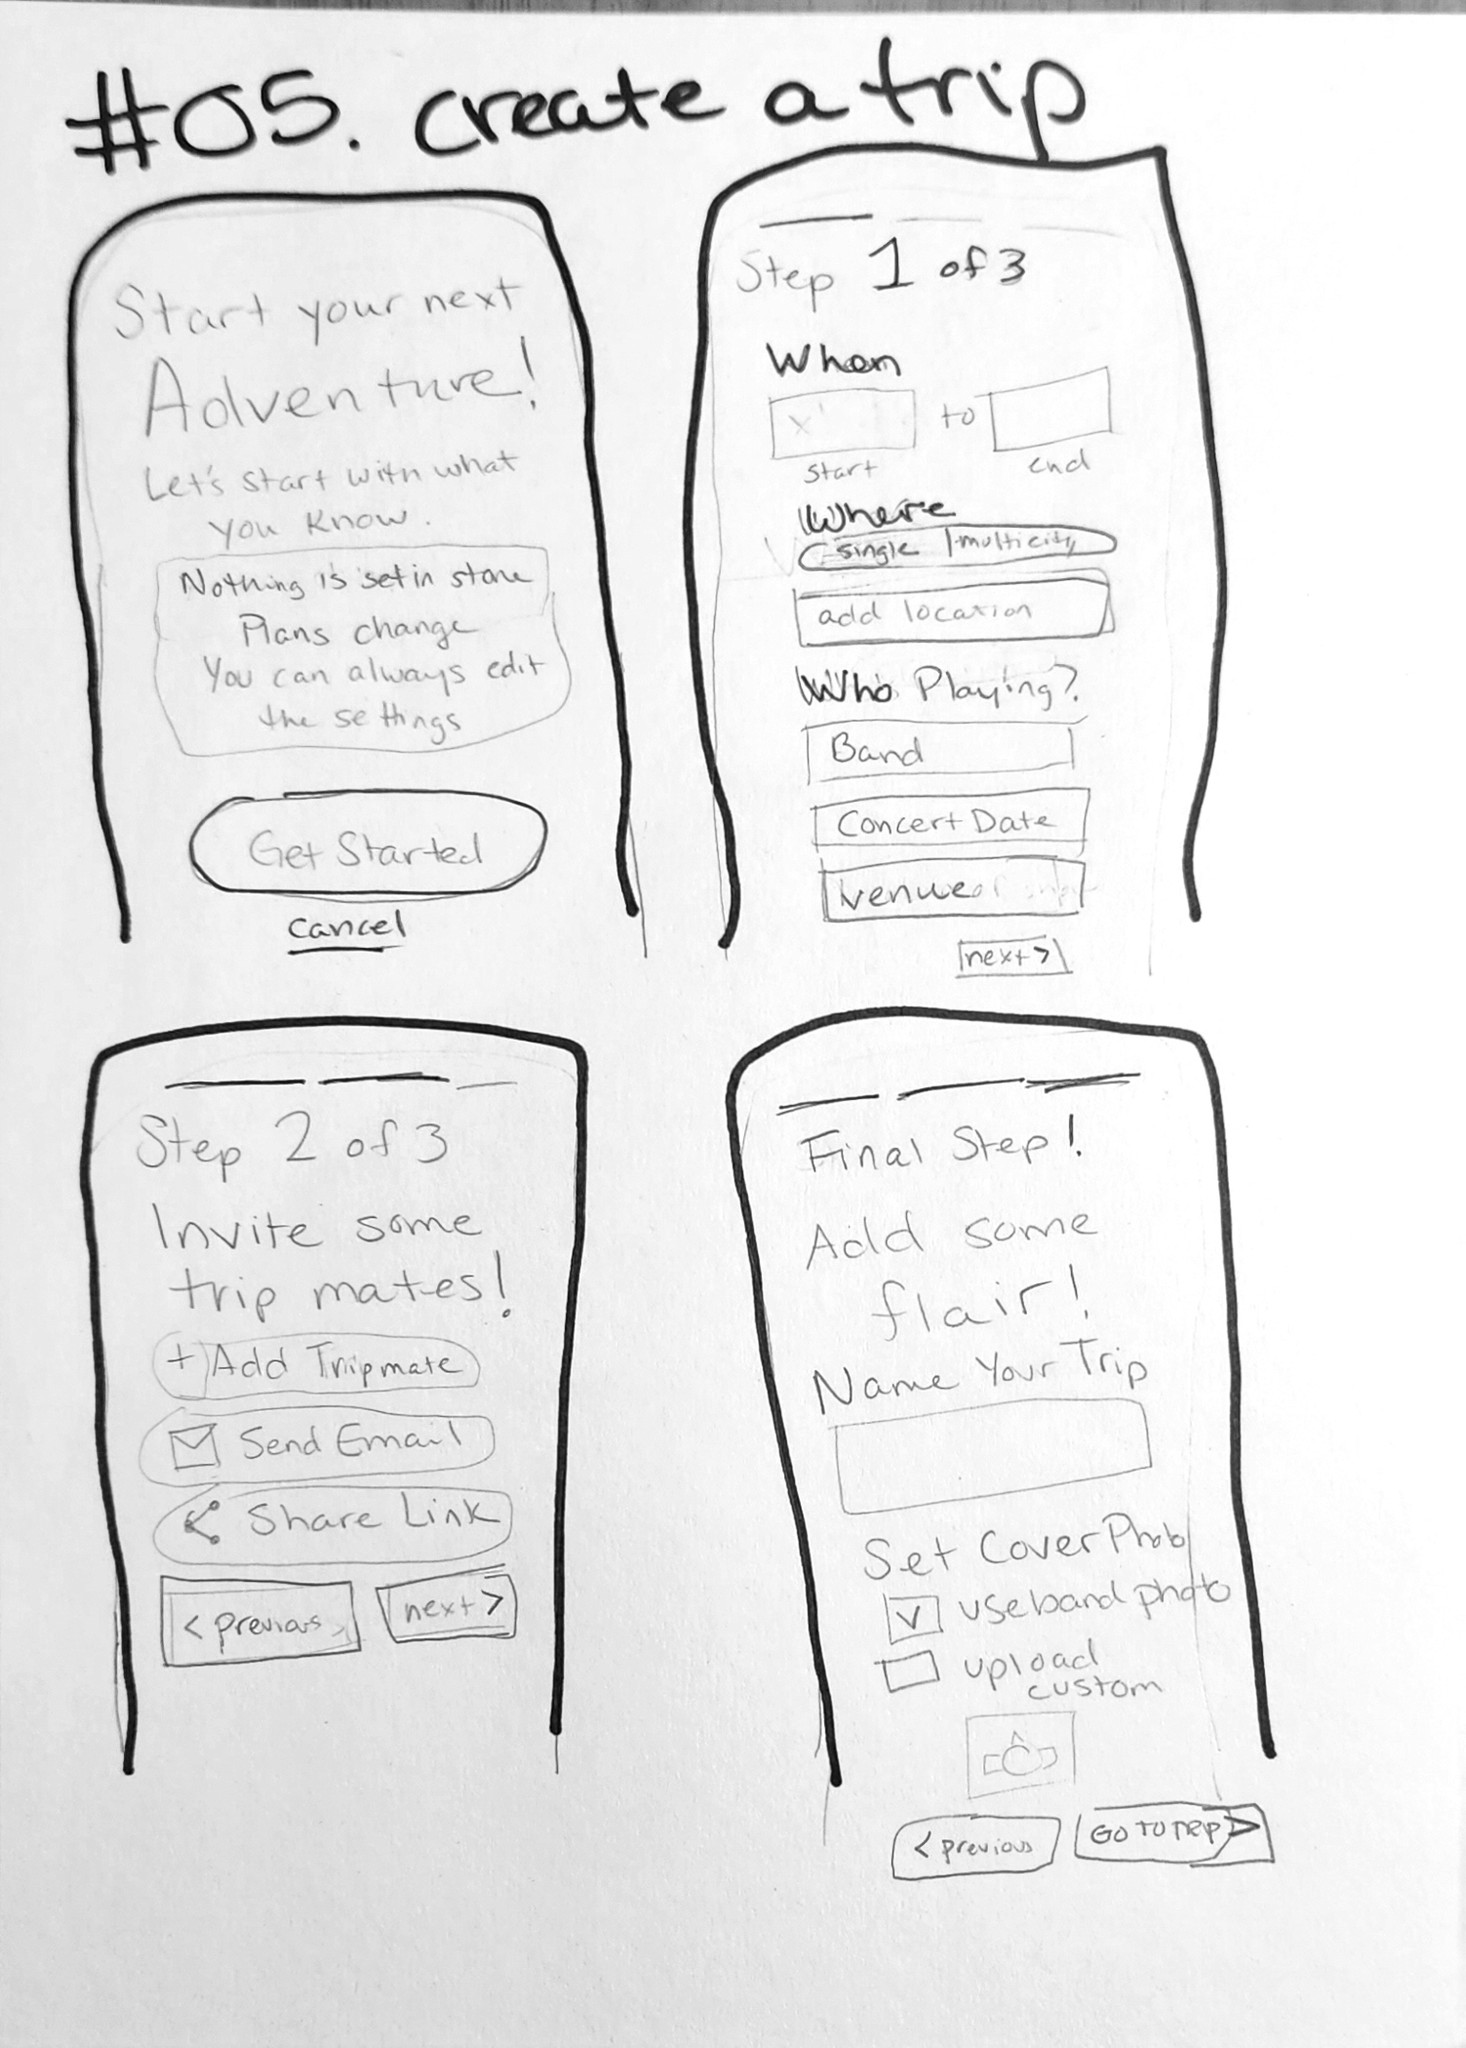 #05. create a trip
Start your next
Adventure!
Let's start with what
you know.
Nothing is set in stone
Plans change
You can always edit
the settings
Get Started
cancel
Step 1 of 3
When
to
start
end
Where
single | multicity
add location
Who Playing?
Band
Concert Date
venue
next >
Step 2 of 3
Invite some
trip mates!
+ Add Tripmate
Send Email
Share Link
< previous
next >
Final Step!
Add some
flair!
Name Your Trip
Set Cover Photo
use band photo
upload
custom
< previous
GO TO TRIP >